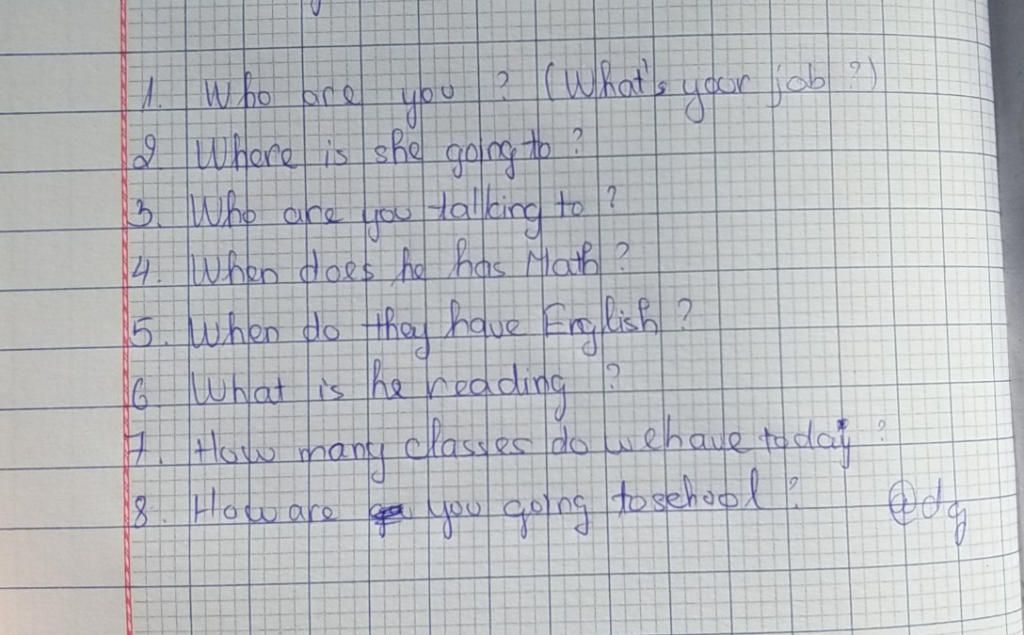 1. Who are you ? (What's your job ?)
2 Where is she going to ?
3. Who are you talking to ?
4. When does he has Math ?
5. When do they have English ?
6 What is he reading ?
7. How many classes do we have today ?
8. How are you going to school ? @dg